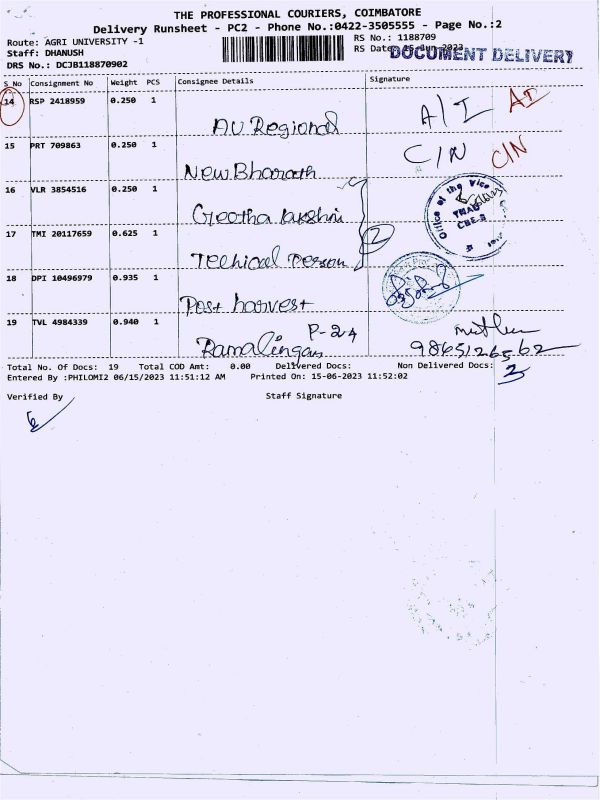 THE PROFESSIONAL COURIERS, COIMBATORE
Delivery Runsheet - PC2 - Phone No.:0422-3505555 - Page No.:2
Route: AGRI UNIVERSITY -1
RS No.: 1188709
Staff: DHANUSH
RS Date: 15-Jun-2023
DOCUMENT DELIVERY
DRS No.: DCJB118870902
S_No Consignment No Weight PCS Consignee Details Signature
14 RSP 2418959 0.250 1
AU Regional A/I AI
15 PRT 709863 0.250 1
New Bharath C/N C/N
16 VLR 3854516 0.250 1
Geetha lakshmi
Office of the Vice
TNAU
CBE-3
17 TMI 20117659 0.625 1
Techical person 2
18 DPI 10496979 0.935 1
Post harvest
19 TVL 4984339 0.940 1
P-24
Ramalingam 9865126562
Total No. Of Docs: 19 Total COD Amt: 0.00 Delivered Docs: Non Delivered Docs: 3
Entered By :PHILOMI2 06/15/2023 11:51:12 AM Printed On: 15-06-2023 11:52:02
Verified By Staff Signature